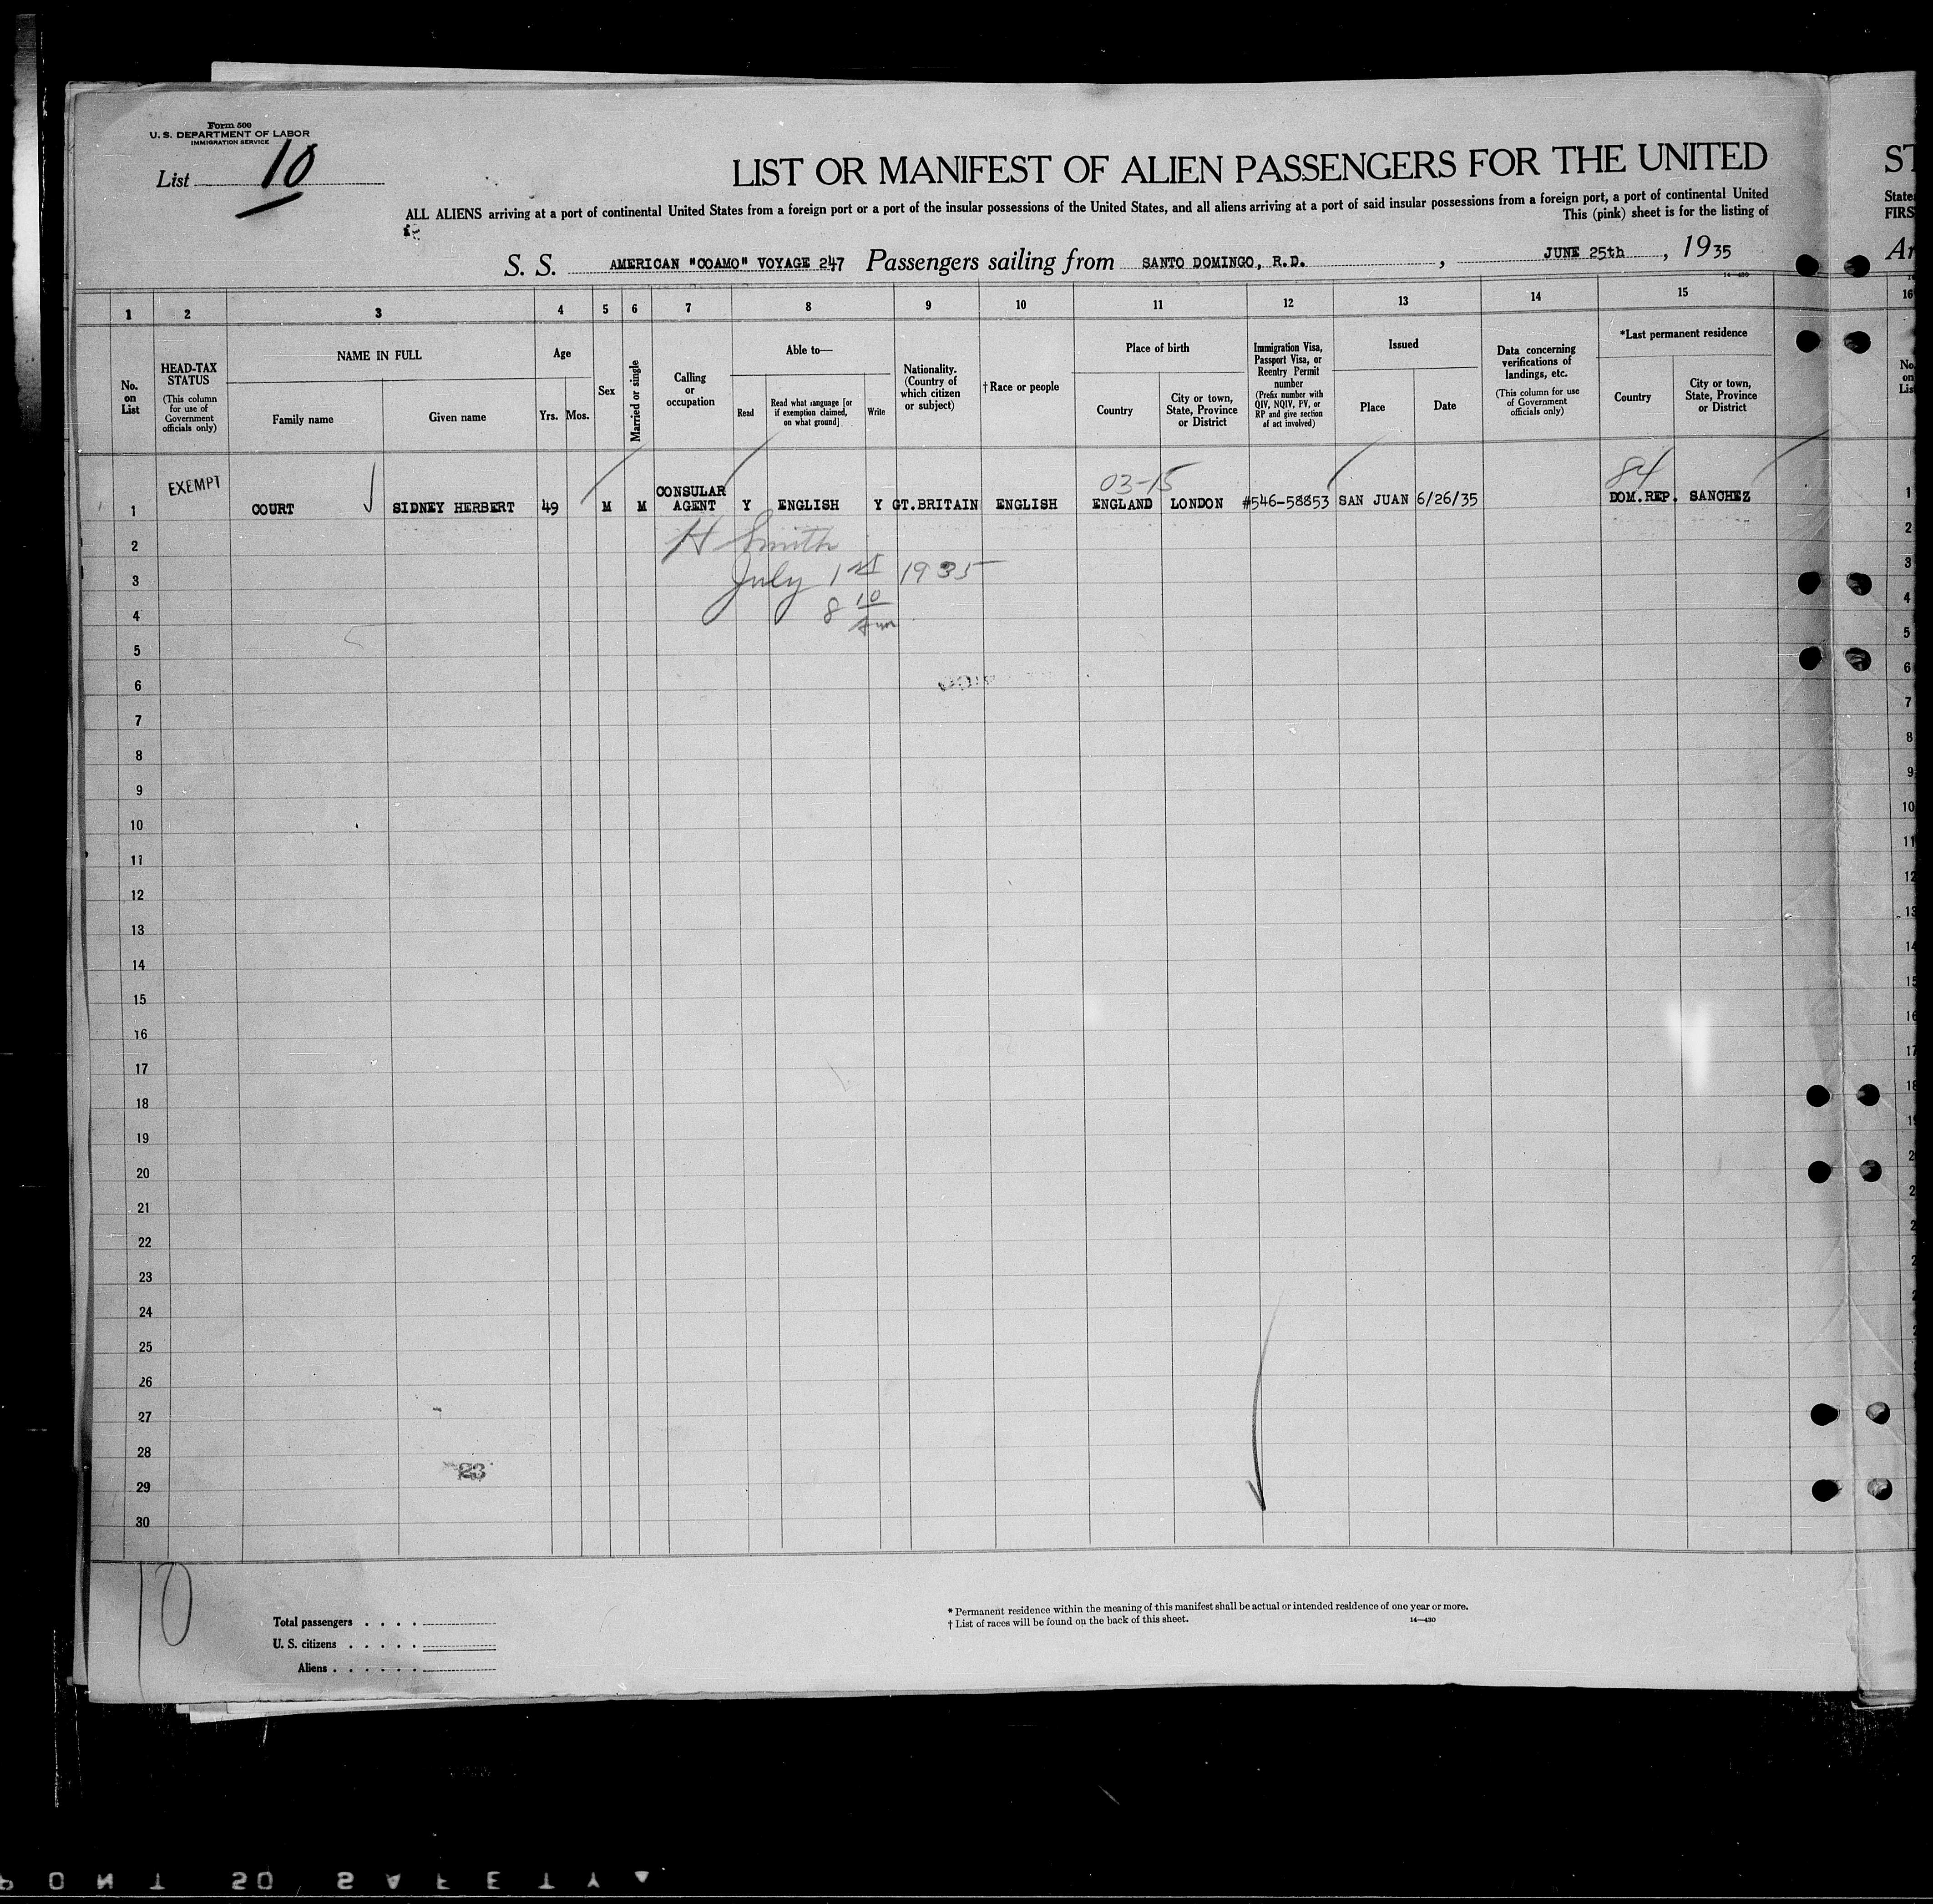 Form 500
U. S. DEPARTMENT OF LABOR
IMMIGRATION SERVICE
List 10
LIST OR MANIFEST OF ALIEN PASSENGERS FOR THE UNITED
ST
ALL ALIENS arriving at a port of continental United States from a foreign port or a port of the insular possessions of the United States, and all aliens arriving at a port of said insular possessions from a foreign port, a port of continental United
States
This (pink) sheet is for the listing of
FIRS
S. S. AMERICAN "COAMO" VOYAGE 247 Passengers sailing from SANTO DOMINGO, R.D. , JUNE 25th , 1935
Ar
14—430
1 2 3 4 5 6 7 8 9 10 11 12 13 14 15 16
No. on List
HEAD-TAX STATUS (This column for use of Government officials only)
NAME IN FULL
Family name
Given name
Age
Yrs. Mos.
Sex
Married or single
Calling or occupation
Able to—
Read
Read what language [or if exemption claimed, on what ground]
Write
Nationality. (Country of which citizen or subject)
†Race or people
Place of birth
Country
City or town, State, Province or District
Immigration Visa, Passport Visa, or Reentry Permit number (Prefix number with QIV, NQIV, PV, or RP and give section of act involved)
Issued
Place
Date
Data concerning verifications of landings, etc. (This column for use of Government officials only)
*Last permanent residence
Country
City or town, State, Province or District
No. on List
03-15
84
1 EXEMPT COURT SIDNEY HERBERT 49 M M CONSULAR AGENT Y ENGLISH Y GT.BRITAIN ENGLISH ENGLAND LONDON #546-58853 SAN JUAN 6/26/35 DOM.REP. SANCHEZ 1
2 H Smith 2
3 July 1st 1935 3
4 8 10 4
5 5
6 6
7 7
8 8
9 9
10 10
11 11
12 12
13 13
14 14
15 15
16 16
17 17
18 18
19
20
21
22
23
24
25
26
27
28
23
29
30
10
Total passengers . . . .
U. S. citizens . . . . .
Aliens . . . . . .
* Permanent residence within the meaning of this manifest shall be actual or intended residence of one year or more.
† List of races will be found on the back of this sheet.
14—430
PONT SO SAFETY